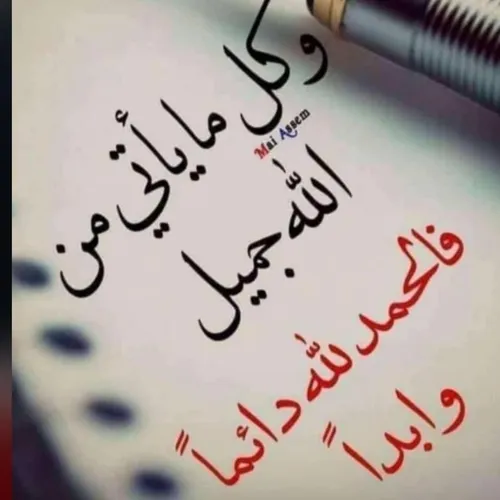 وكل ما يأتي من
Mai Assem
الله جميل
فالحمد لله دائماً
وابداً